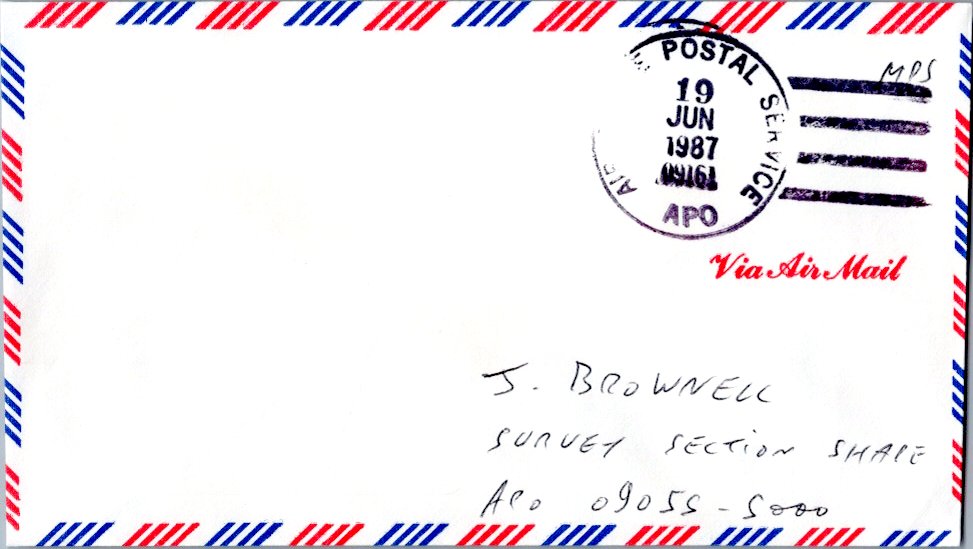 POSTAL SERVICE
19
JUN
1987
09161
AIR
APO
MPS
Via Air Mail
J. BROWNELL
SURVEY SECTION SHAPE
APO 09055-5000